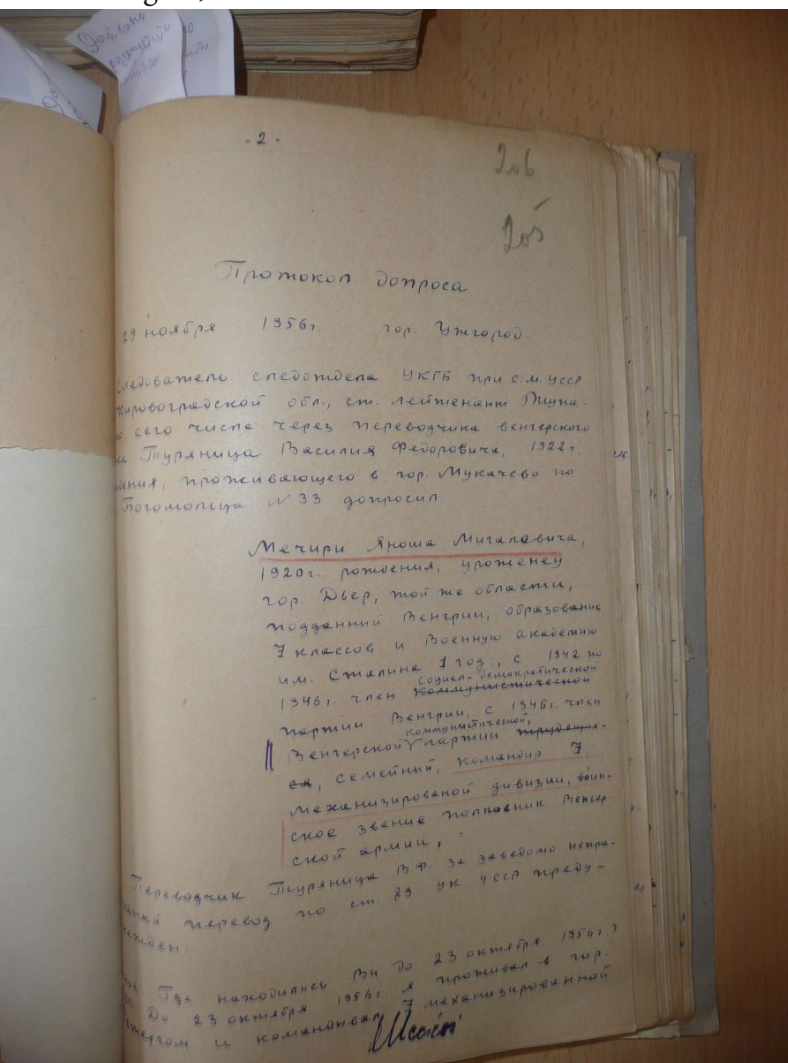 - 2 -
206
205
Протокол допроса
29 ноября 1956г. гор. Ужгород.
следователь следотдела УКГБ при с.м. усср
кировоградской обл., ст. лейтенант
сего числа через переводчика венгерского
Туряница Василия Федоровича, 1922г.
проживающего в гор. Мукачево по
Богомольца № 33 допросил
Мечири Яноша Мигалавича,
1920г. рождения, уроженец
гор. Дьер, той же области,
подданный Венгрии, образование
7 классов и Военную академию
им. Сталина 1 год., с 1942 по
социал-демократической
1946г. член коммунистической
партии Венгрии, с 1946г. член
коммунистической,
Венгерской партии трудящих-
ся, семейный, командир 7
механизированой дивизии, воин-
ское звание полковник Венгер-
ской армии,
Переводчик Туряница В.Ф. за заведомо непра-
перевод по ст 89 ук усср преду-
Где находились Вы до 23 октября 1956г.?
До 23 октября 1956г. я проживал в гор.
и командовал 7 механизированной